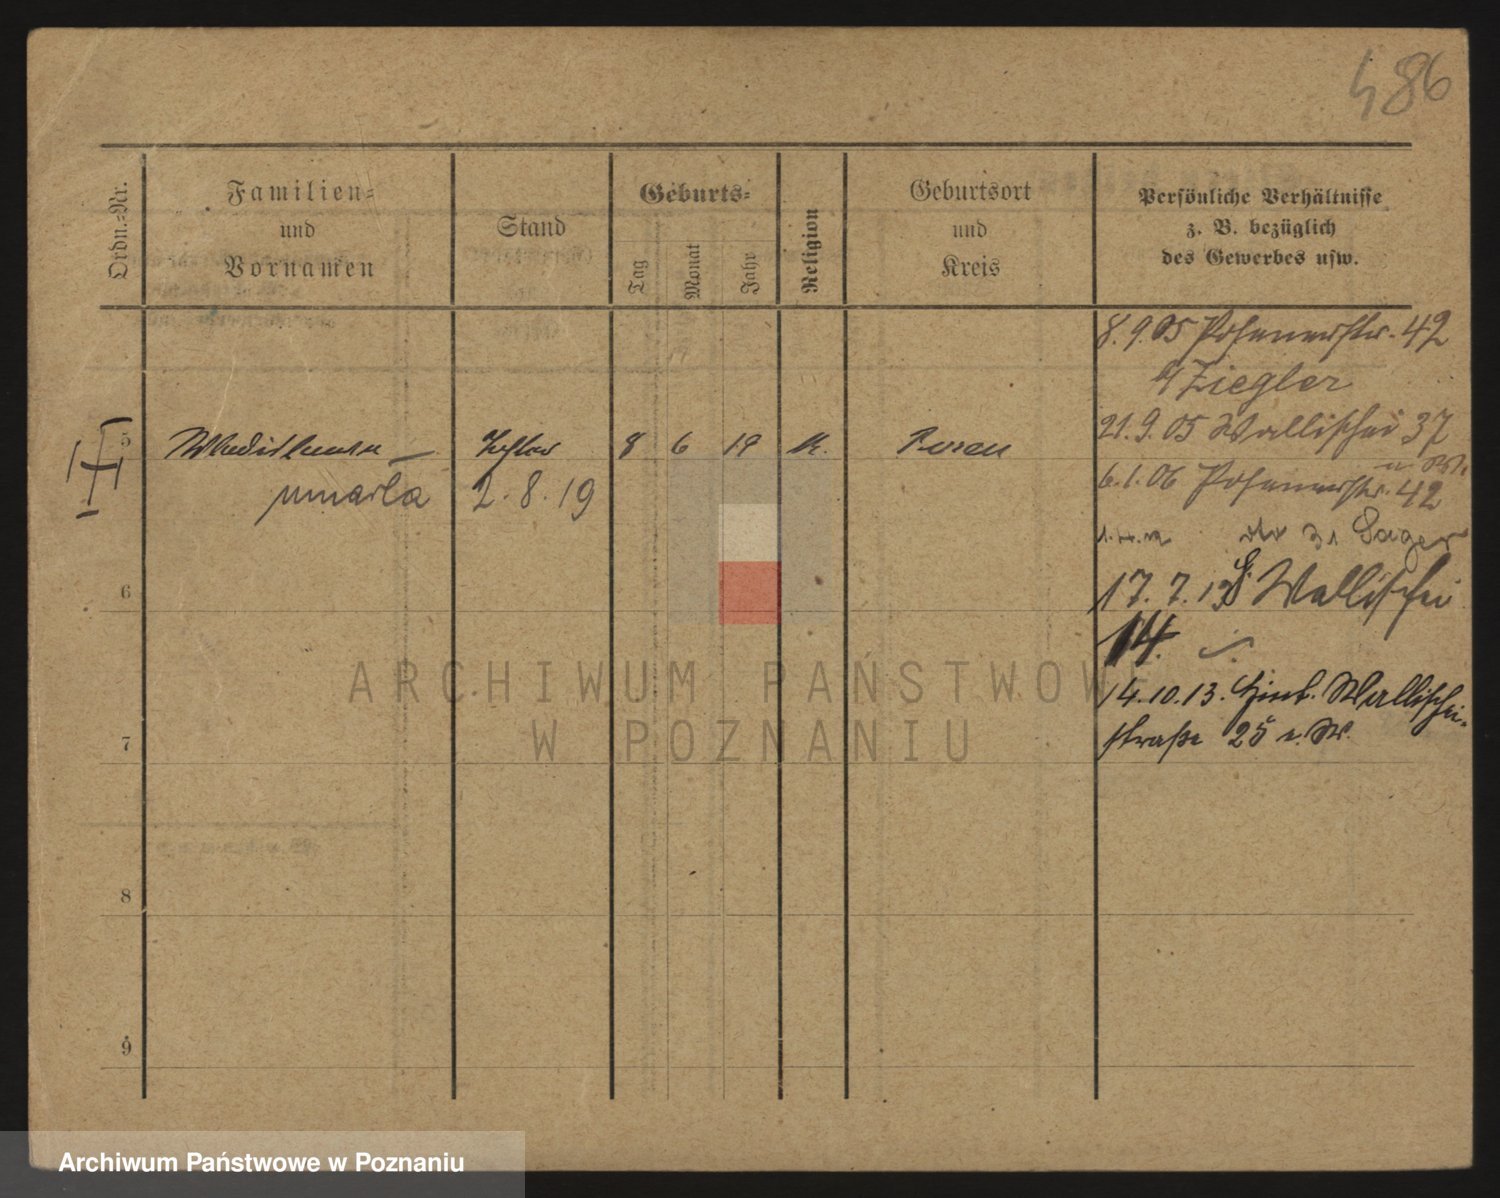 486
Ordn.-Nr.
Familien-
und
Vornamen
Stand
Geburts-
Tag
Monat
Jahr
Religion
Geburtsort
und
Kreis
Persönliche Verhältnisse
z. B. bezüglich
des Gewerbes usw.
8.9.05 Posenerstr. 42
Ziegler
21.9.05 Wallischei 37
5 8 6 19 K. Posen
6.1.06 Posenerstr. 42
umarła 2.8.19
Sager
6
17.7.13 Wallischei
14.
14.10.13. Hint. Wallischei-
straße 25
7
8
9
ARCHIWUM PAŃSTWOWE
W POZNANIU
Archiwum Państwowe w Poznaniu